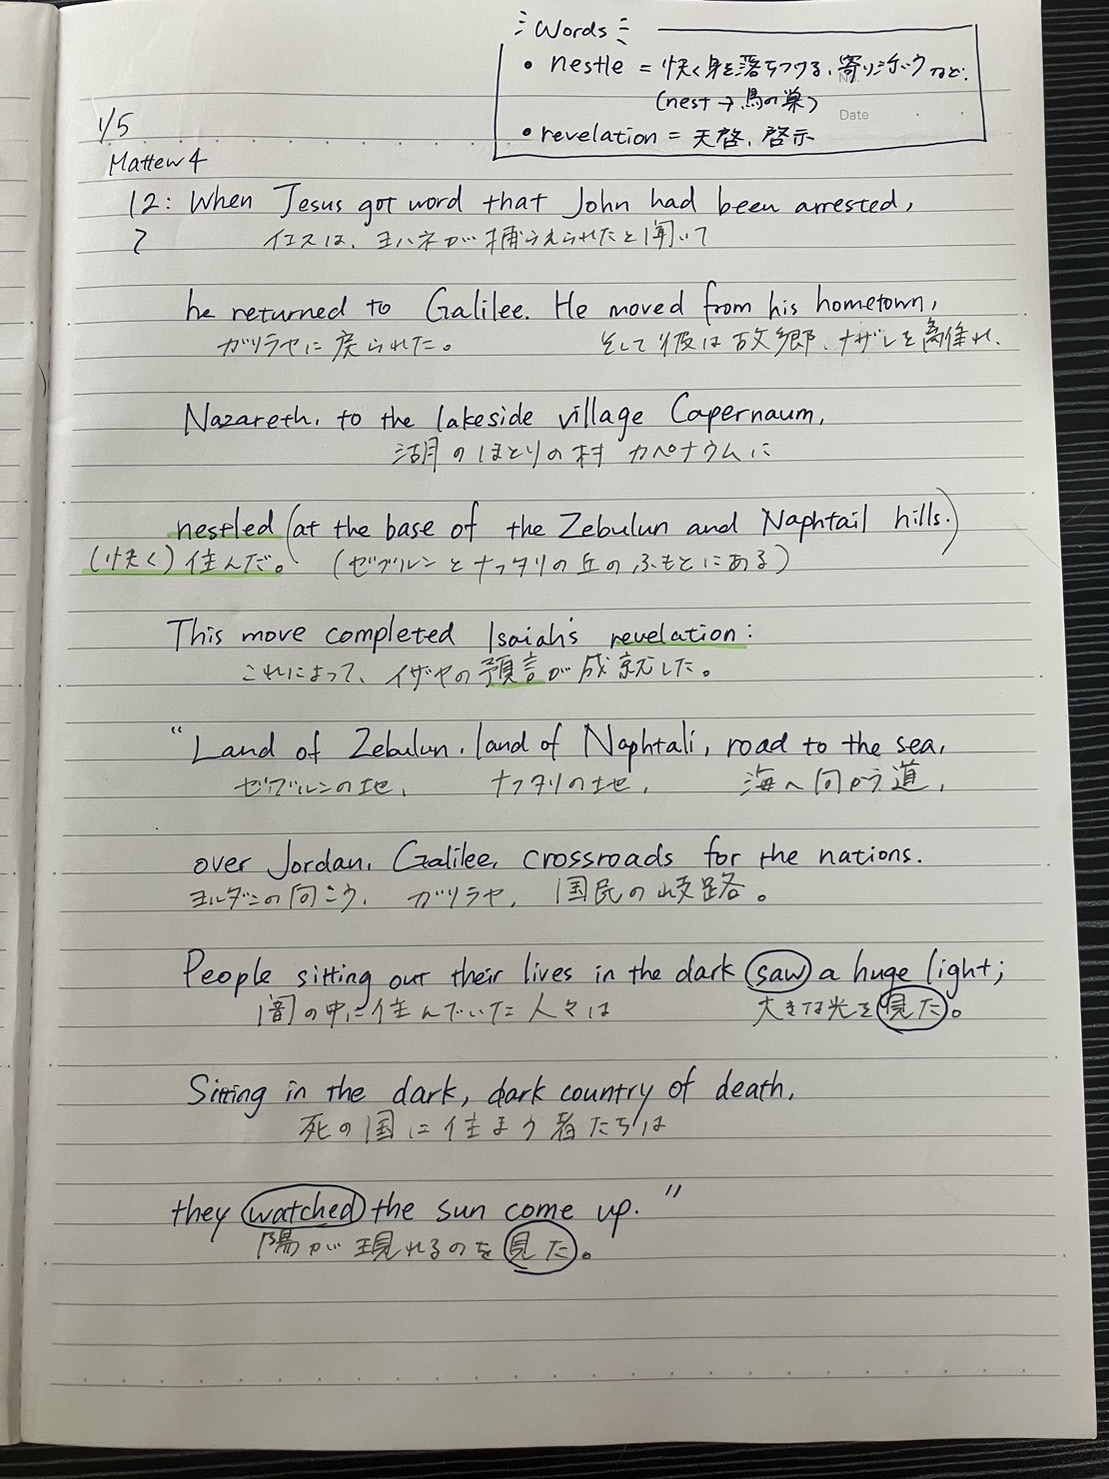 Words
• nestle = 快く身を落ちつける、寄りそうなど.
(nest → 鳥の巣)
Date
• revelation = 天啓、啓示
1/5
Mattew 4
12: When Jesus got word that John had been arrested,
イエスは、ヨハネが捕らえられたと聞いて
he returned to Galilee. He moved from his hometown,
ガリラヤに戻られた。 そして彼は故郷、ナザレを離れ、
Nazareth, to the lakeside village Capernaum,
湖のほとりの村 カペナウムに
nestled (at the base of the Zebulun and Naphtail hills.)
(快く) 住んだ。 (ゼブルンとナフタリの丘のふもとにある)
This move completed Isaiah's revelation:
これによって、イザヤの預言が成就した。
"Land of Zebulun, land of Naphtali, road to the sea,
ゼブルンの地、 ナフタリの地、 海へ向かう道、
over Jordan, Galilee, crossroads for the nations.
ヨルダンの向こう、 ガリラヤ、 国民の岐路。
People sitting out their lives in the dark saw a huge light;
闇の中に住んでいた人々は 大きな光を見た。
Sitting in the dark, dark country of death,
死の国に住まう者たちは
they watched the sun come up."
陽が現れるのを見た。